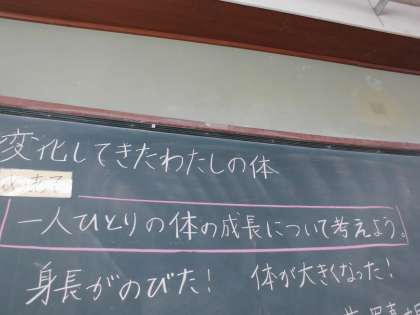 変化してきたわたしの体
めあて
一人ひとりの体の成長について考えよう。
身長がのびた！ 体が大きくなった！